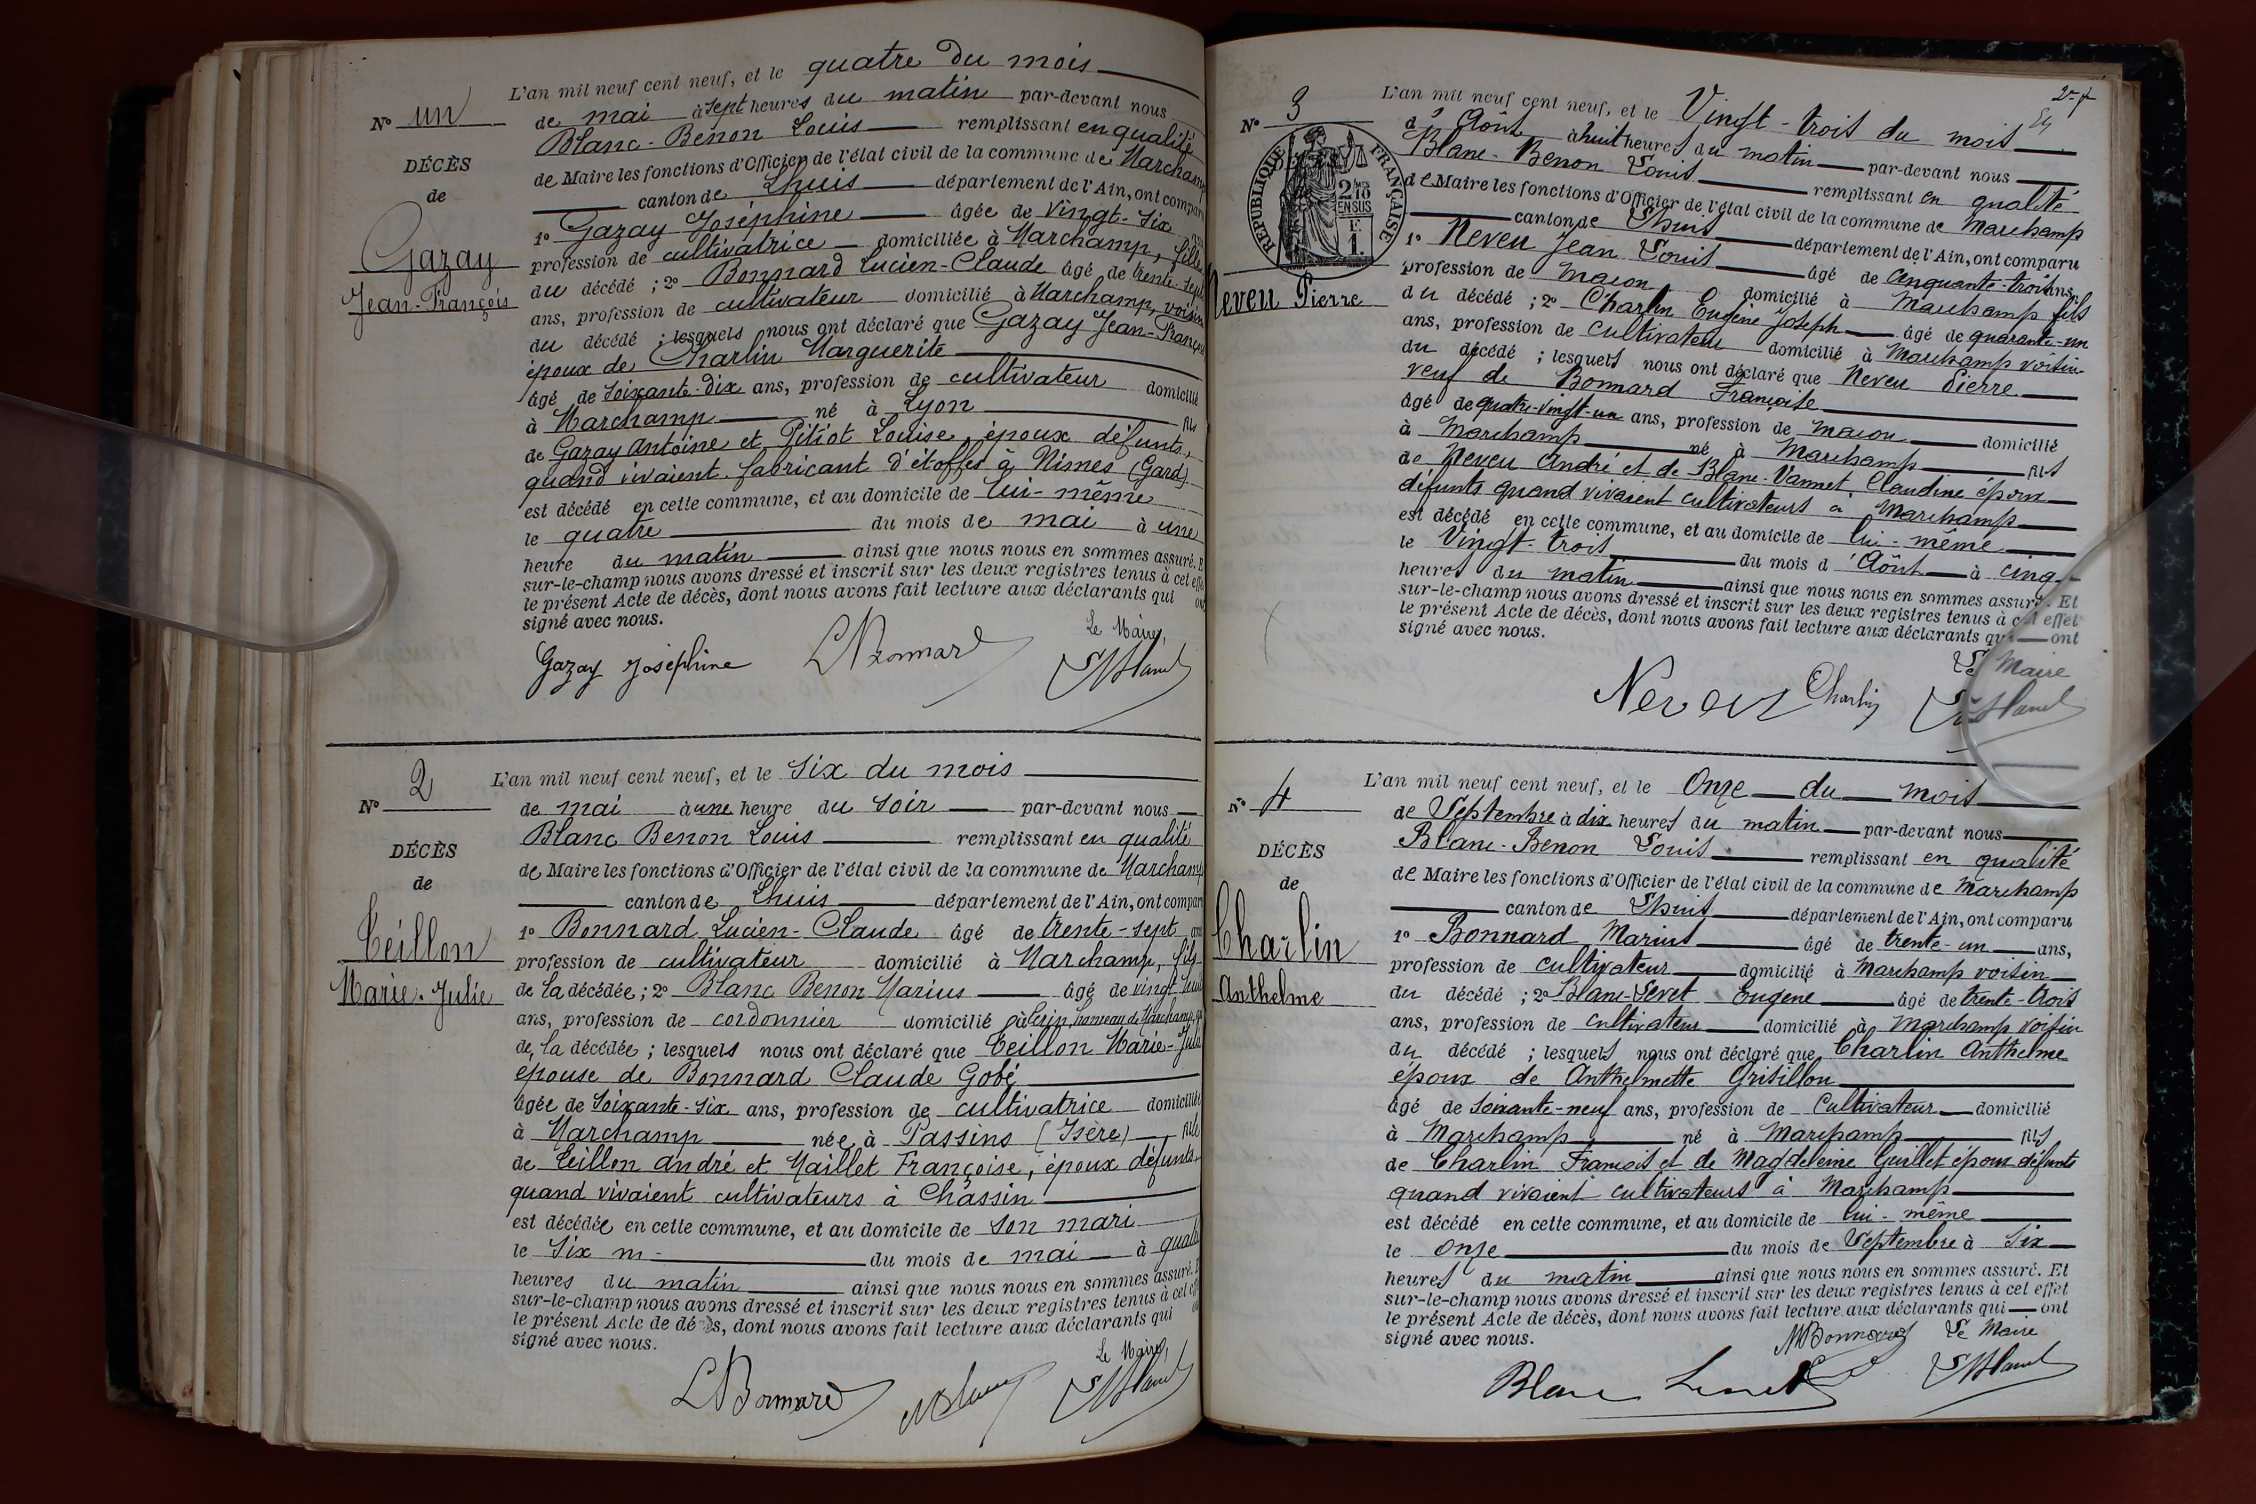 L'an mil neuf cent neuf, et le quatre du mois
No un
de mai à sept heures du matin par-devant nous
Blanc-Benon Louis remplissant en qualité
DÉCÈS
de Maire les fonctions d'Officier de l'état civil de la commune de Marchamp
de
canton de Lhuis département de l'Ain, ont comparu
Gazay
Jean-François
1o Gazay Joséphine âgée de vingt-six ans
profession de cultivatrice domiciliée à Marchamp, fille
du décédé ; 2o Bonnard Lucien-Claude âgé de trente-sept
ans, profession de cultivateur domicilié à Marchamp, voisin
du décédé ; lesquels nous ont déclaré que Gazay Jean-François
époux de Charlin Marguerite
âgé de soixante-dix ans, profession de cultivateur domicilié
à Marchamp né à Lyon fils
de Gazay Antoine et Pitiot Louise, époux défunts,
quand vivaient fabricant d'étoffes à Nimes (Gard)
est décédé en cette commune, et au domicile de lui-même
le quatre du mois de mai à une
heure du matin ainsi que nous nous en sommes assuré. E
sur-le-champ nous avons dressé et inscrit sur les deux registres tenus à cet effet
le présent Acte de décès, dont nous avons fait lecture aux déclarants qui ont
signé avec nous.
Le Maire,
Gazay Joséphine LBonnard LBlanc
No 2
L'an mil neuf cent neuf, et le six du mois
de mai à une heure du soir par-devant nous
Blanc Benon Louis remplissant en qualité
DÉCÈS
de Maire les fonctions d'Officier de l'état civil de la commune de Marchamp
de
canton de Lhuis département de l'Ain, ont comparu
Teillon
Marie-Julie
1o Bonnard Lucien-Claude âgé de trente-sept ans
profession de cultivateur domicilié à Marchamp, fils
de la décédée ; 2o Blanc Benon Marius âgé de vingt-huit
ans, profession de cordonnier domicilié à Cerin, hameau de Marchamp,
de la décédée ; lesquels nous ont déclaré que Teillon Marie-Julie
épouse de Bonnard Claude Gobé
âgée de soixante-six ans, profession de cultivatrice domiciliée
à Marchamp née à Passins (Isère) fille
de Teillon André et Maillet Françoise, époux défunts
quand vivaient cultivateurs à Chassin
est décédée en cette commune, et au domicile de son mari
le six m du mois de mai à quatre
heures du matin ainsi que nous nous en sommes assuré. E
sur-le-champ nous avons dressé et inscrit sur les deux registres tenus à cet effet
le présent Acte de décès, dont nous avons fait lecture aux déclarants qui
signé avec nous.
Le Maire,
LBonnard MBlanc LBlanc
No 3
L'an mil neuf cent neuf, et le Vingt-trois du mois
d'Août à huit heures du matin par-devant nous
Blanc-Benon Louis remplissant en qualité
de Maire les fonctions d'Officier de l'état civil de la commune de Marchamp
canton de Lhuis département de l'Ain, ont comparu
RÉPUBLIQUE FRANÇAISE
2/10 EN SUS
F 1
Neveu Pierre
1o Neveu Jean Louis âgé de cinquante-trois ans,
profession de maçon domicilié à Marchamp fils
du décédé ; 2o Charlin Eugène Joseph âgé de quarante-un
ans, profession de cultivateur domicilié à Marchamp voisin
du décédé ; lesquels nous ont déclaré que Neveu Pierre
veuf de Bonnard Françoise
âgé de quatre-vingt-un ans, profession de maçon domicilié
à Marchamp né à Marchamp fils
de Neveu André et de Blanc-Vannet Claudine époux
défunts quand vivaient cultivateurs à Marchamp
est décédé en cette commune, et au domicile de lui-même
le Vingt-trois du mois d'Août à cinq
heures du matin ainsi que nous nous en sommes assuré. Et
sur-le-champ nous avons dressé et inscrit sur les deux registres tenus à cet effet
le présent Acte de décès, dont nous avons fait lecture aux déclarants qui ont
signé avec nous.
Le Maire
Neveu Charlin LBlanc
No 4
L'an mil neuf cent neuf, et le Onze du mois
de Septembre à dix heures du matin par-devant nous
Blanc-Benon Louis remplissant en qualité
DÉCÈS
de Maire les fonctions d'Officier de l'état civil de la commune de Marchamp
de
canton de Lhuis département de l'Ain, ont comparu
Charlin
Anthelme
1o Bonnard Marius âgé de trente-un ans,
profession de cultivateur domicilié à Marchamp voisin
du décédé ; 2o Blanc-Sevet Eugène âgé de trente-trois
ans, profession de cultivateur domicilié à Marchamp voisin
du décédé ; lesquels nous ont déclaré que Charlin Anthelme
époux de Anthelmette Grisillon
âgé de soixante-neuf ans, profession de Cultivateur domicilié
à Marchamp né à Marchamp fils
de Charlin François et de Magdeleine Guillet époux défunts
quand vivaient cultivateurs à Marchamp
est décédé en cette commune, et au domicile de lui-même
le onze du mois de Septembre à six
heures du matin ainsi que nous nous en sommes assuré. Et
sur-le-champ nous avons dressé et inscrit sur les deux registres tenus à cet effet
le présent Acte de décès, dont nous avons fait lecture aux déclarants qui ont
signé avec nous.
MBonnard Le Maire
Blanc LBlanc